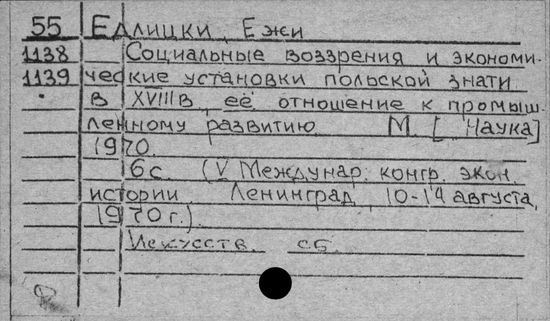 55 Едлицки, Ежи
1138 Социальные воззрения и экономи-
1139 ческие установки польской знати
в XVIIIв, её отношение к промыш-
ленному развитию М. [Наука]
1970.
6с. (V Междунар. конгр. экон.
истории, Ленинград, 10-14 августа,
1970г.).
Искусств. сб.